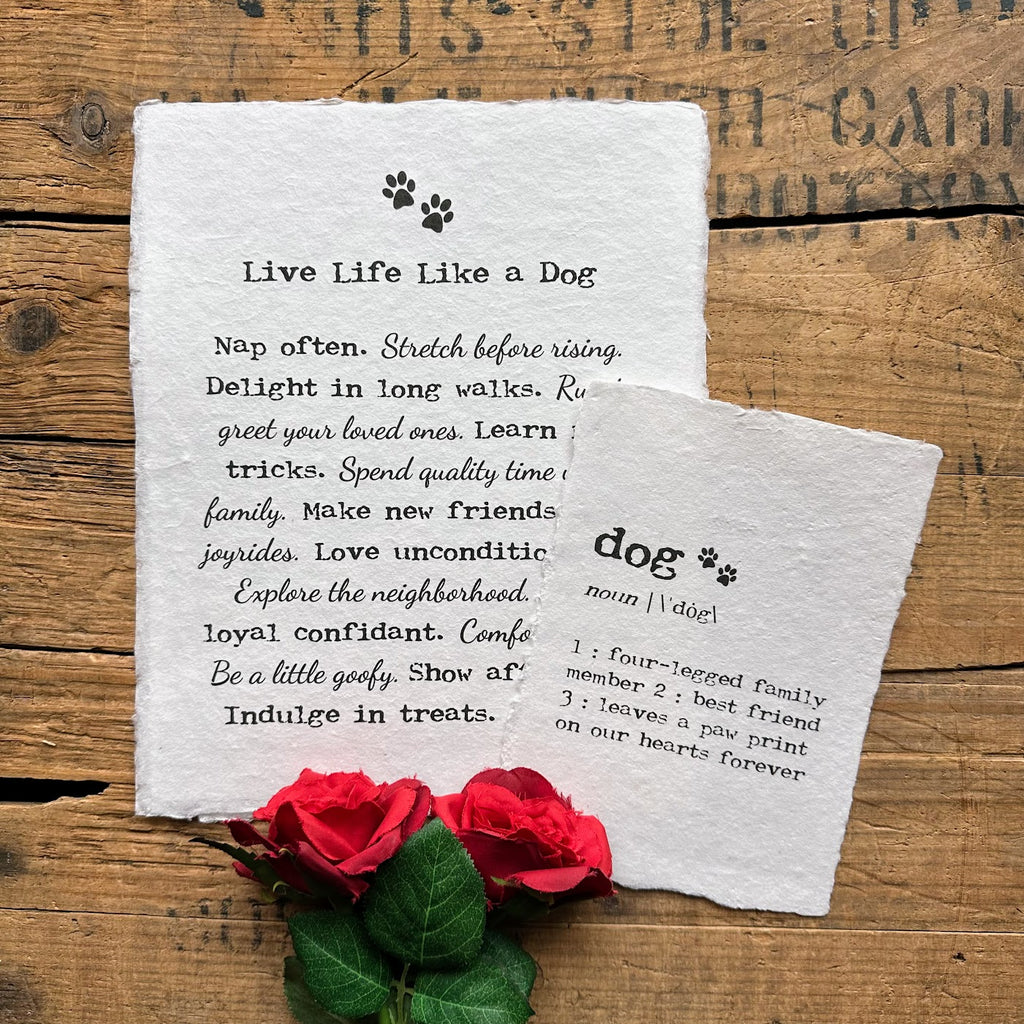 Live Life Like a Dog
Nap often. Stretch before rising.
Delight in long walks.
greet your loved ones. Learn
tricks. Spend quality time
family. Make new friends
joyrides. Love
Explore the neighborhood.
loyal confidant.
Be a little goofy. Show
Indulge in treats.
dog
noun | \ˈdȯg\
1 : four-legged family
member 2 : best friend
3 : leaves a paw print
on our hearts forever